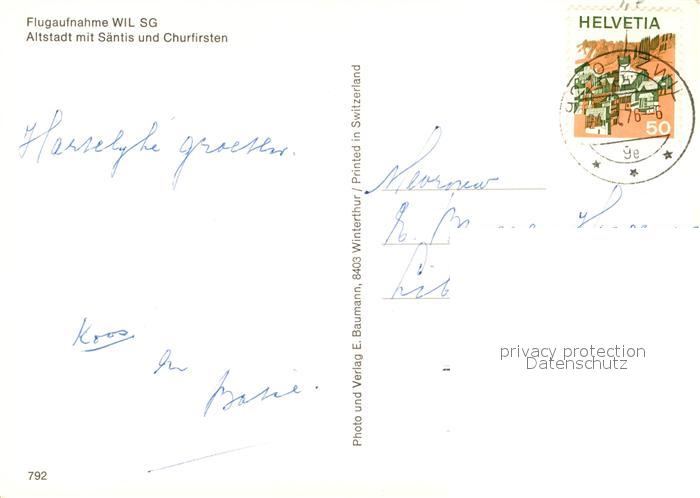 Flugaufnahme WIL SG
Altstadt mit Säntis und Churfirsten
HELVETIA
50
76-6
9e
Hartelyke groeten.
Koos
en
Mevrouw
E.
Photo und Verlag E. Baumann, 8403 Winterthur / Printed in Switzerland
privacy protection
Datenschutz
792